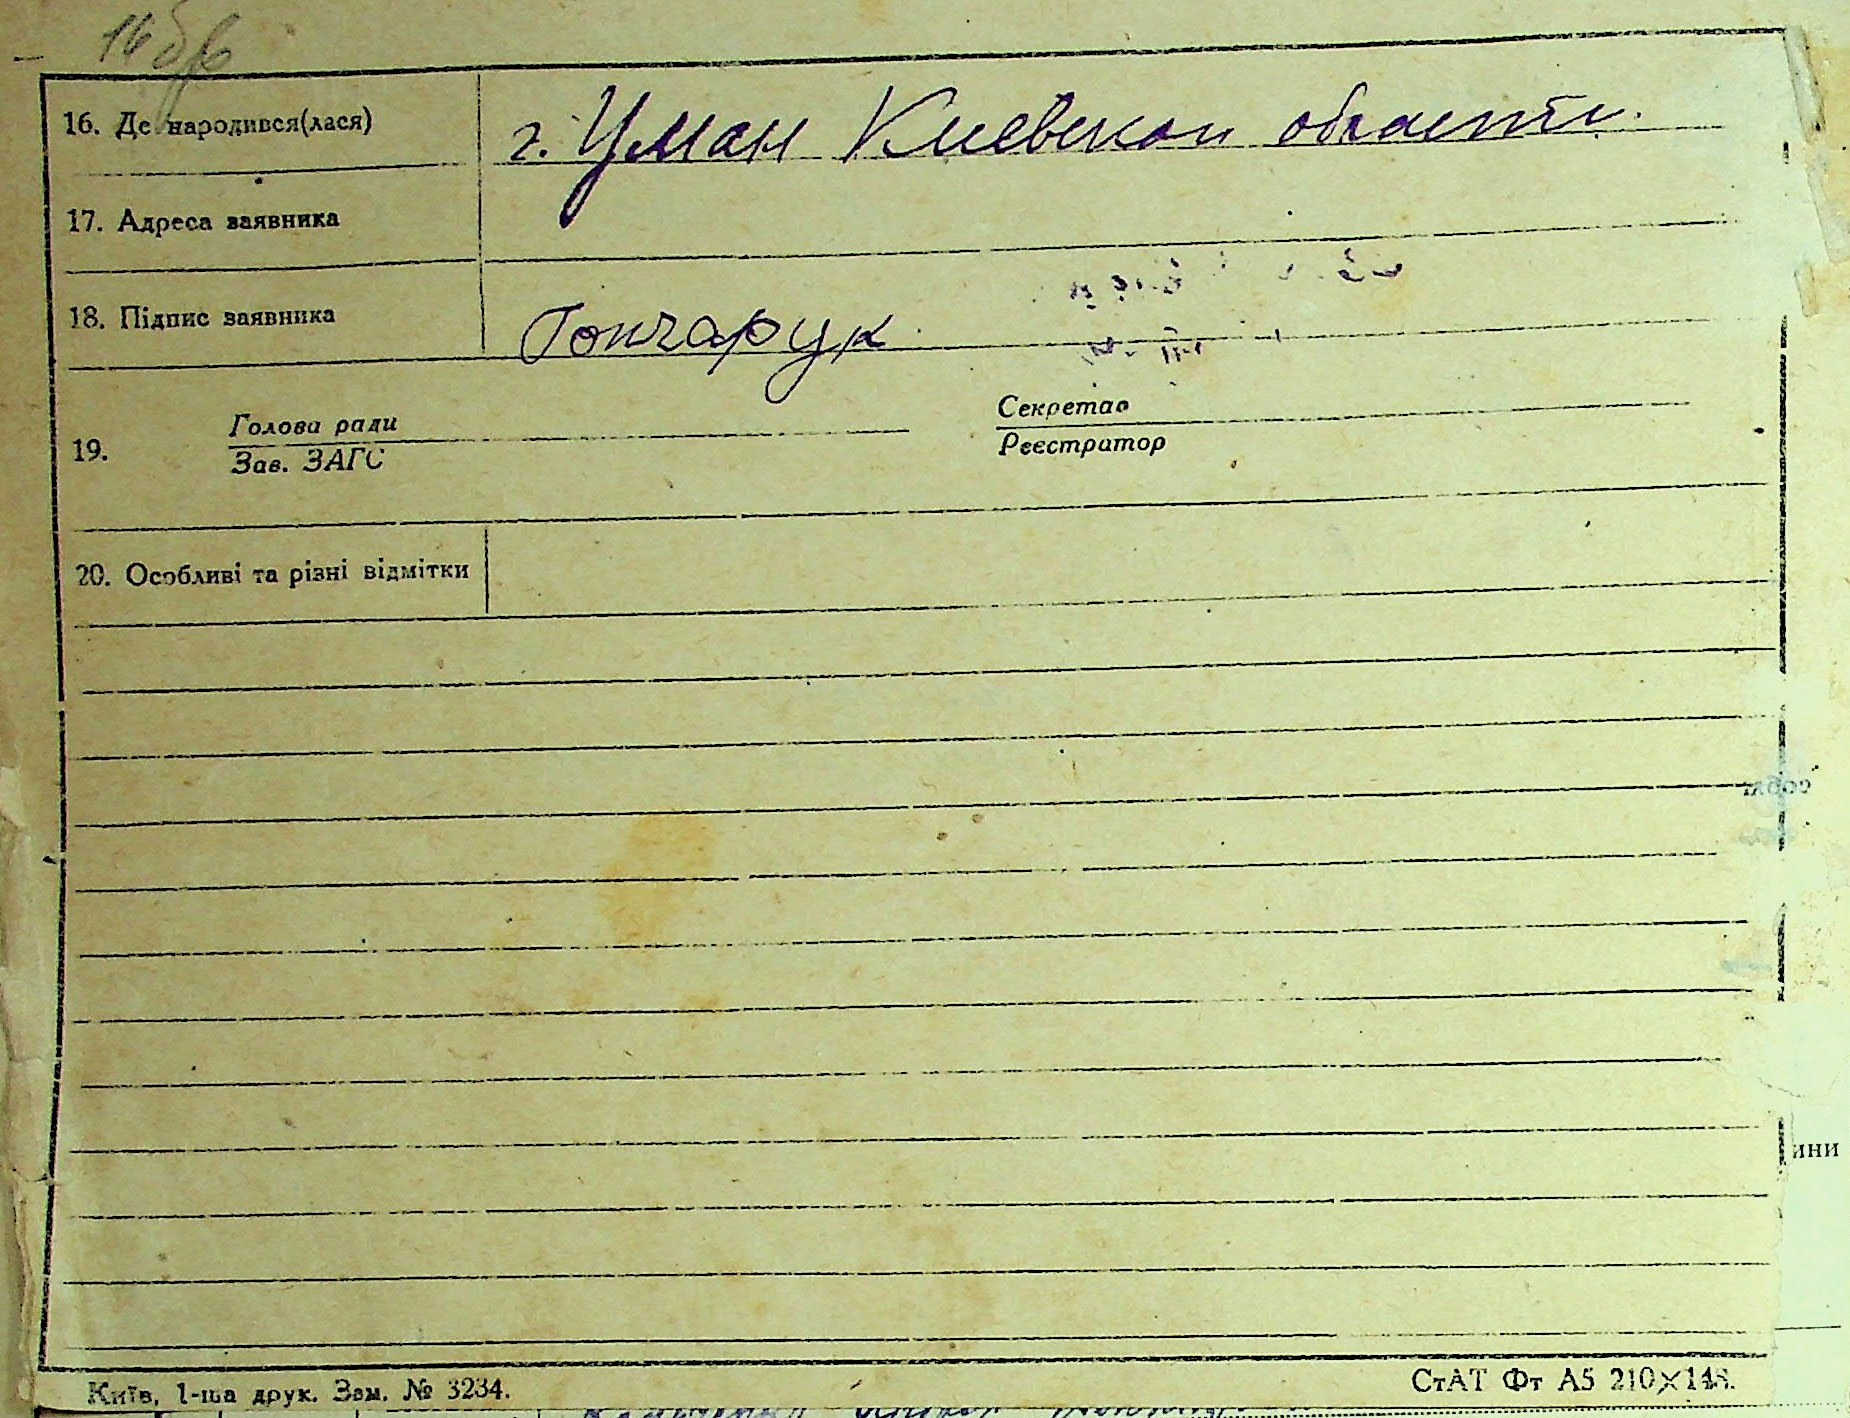 16. Де народився(лася) г. Уман Киевской области.
17. Адреса заявника
18. Підпис заявника Гончарук
19. Голова ради Секретар
Зав. ЗАГС Реєстратор
20. Особливі та різні відмітки
ини
Київ, 1-ша друк. Зам. № 3234. СтАТ Фт А5 210×148.